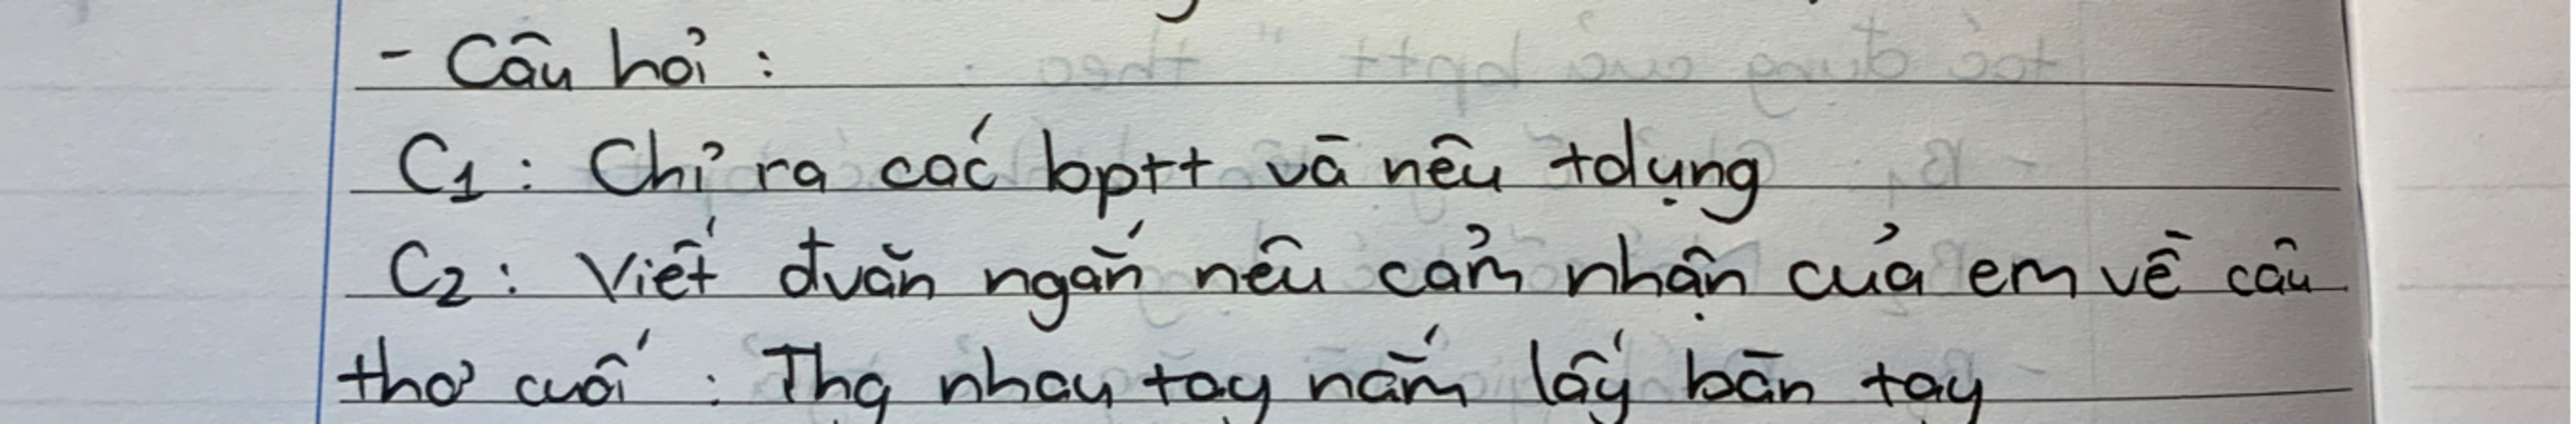 - Câu hỏi :
C1 : Chỉ ra các bptt và nêu tdụng
C2 : Viết đvăn ngắn nêu cảm nhận của em về câu
thơ cuối : Thg nhau tay nắm lấy bàn tay